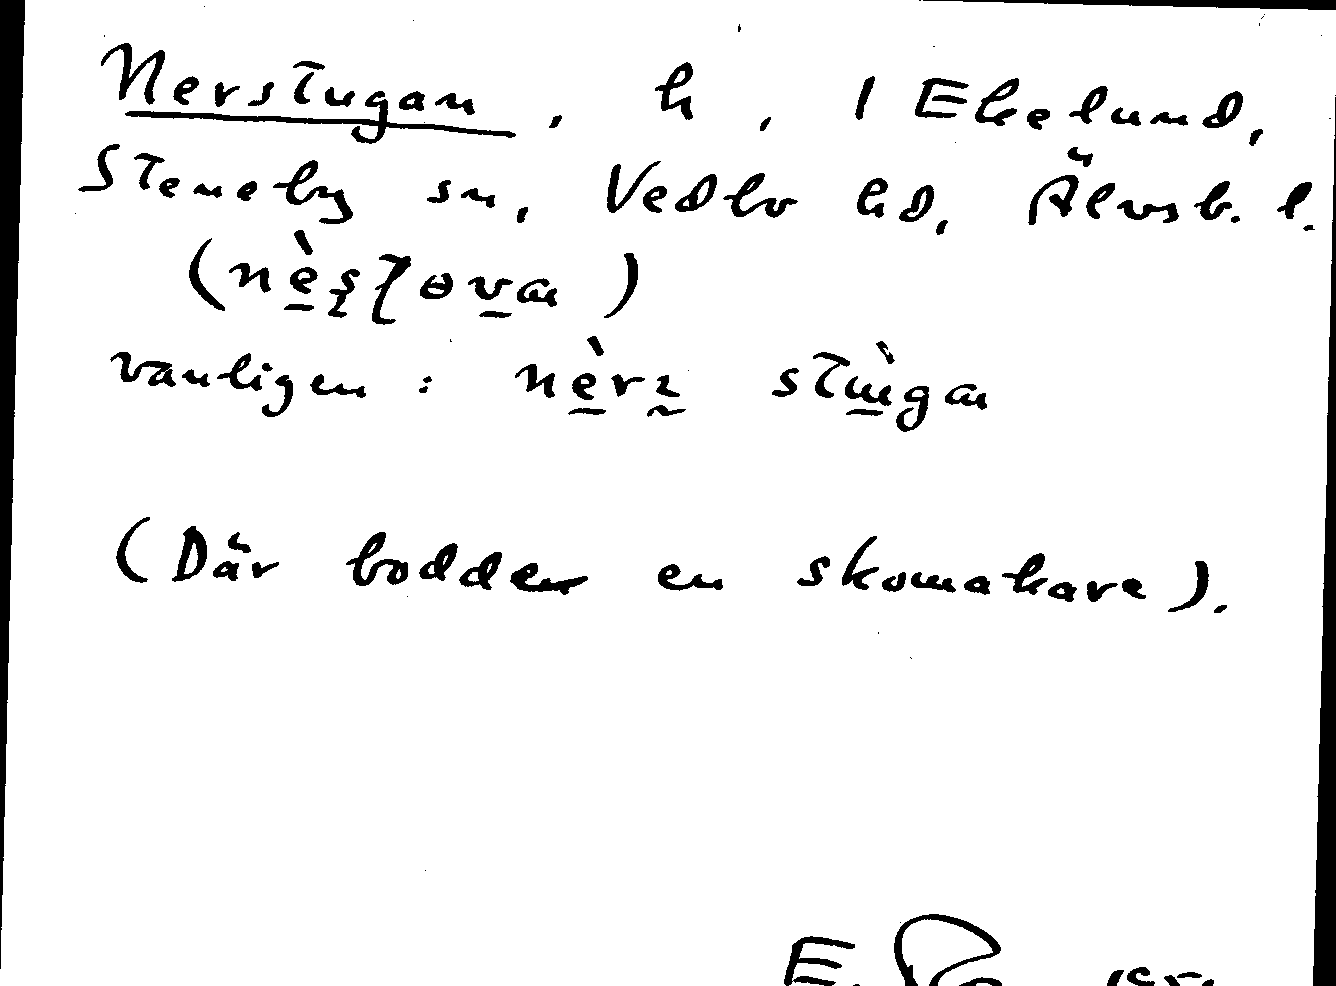 Nerstugan, h, 1 Ekelund,
Steneby sn, Vedbo hd, Älvsb. l.
vanligen:
(Där bodde en skomakare).
E.